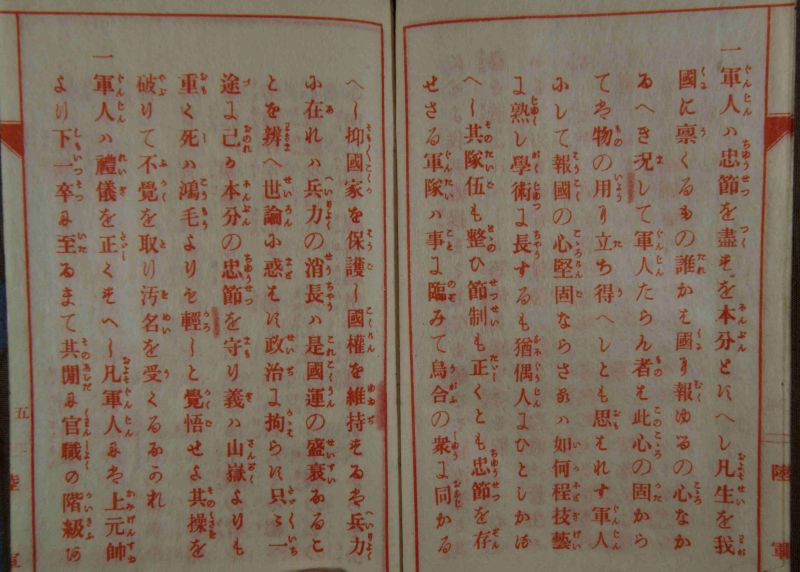 一軍人ハ忠節を盡すを本分とすへし凡生を我
國に禀くるもの誰かは國に報ゆるの心なか
るへき况して軍人たらん者は此心の固から
ては物の用に立ち得へしとも思はれす軍人
にして報國の心堅固ならさるハ如何程技藝
に熟し學術に長するも猶偶人にひとしかる
へし其隊伍も整ひ節制も正くとも忠節を存
せさる軍隊ハ事に臨みて烏合の衆に同かる
へし抑國家を保護し國權を維持するは兵力
に在れハ兵力の消長ハ是國運の盛衰なるこ
とを辨へ世論に惑はす政治に拘らす只々一
途に己か本分の忠節を守り義ハ山嶽よりも
重く死ハ鴻毛よりも輕しと覺悟せよ其操を
破りて不覺を取り汚名を受くるなかれ
一軍人ハ禮儀を正くすへし凡軍人には上元帥
より下一卒に至るまて其間に官職の階級あ
陸軍
五